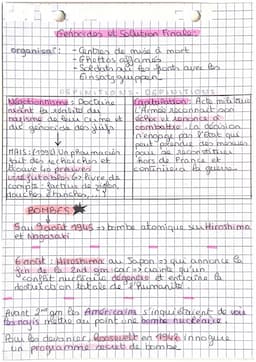 Génocides et Solution Finale:
organisat°: - Centres de mise à mort
- Ghettos affamés
- Soldats du les fronts avec les
Einsatzgruppen
DÉFINITIONS - DÉFINITIONS
Négationnisme: Doctrine
niant la réalité du
nazisme de leur crime et
du génocide des juifs
MAIS: (1994) Un pharmacien
fait des recherches et
trouve les preuves
irréfutables (livre de
compte: factures de
douches étanches, ...)
Capitulation: Acte militaire
l'Armée reconnait son
échec et renonce à
combattre. La décision
n'engage pas l'État qui
peut prendre des mesures
pour se reconstituer
hors de France et
continuer la guerre
BOMBES
6 au 9 août 1945 => bombe atomique sur Hiroshima
et Nagasaki
6 août: Hiroshima au Japon => qui annonce la
fin de la 2nd gm car => crainte qu'un
conflit nucléaire dégénère et entraîne la
destruction totale de l'Humanité.
Avant 2nd gm les Américains s'inquiétaient de voir
les nazis mettre au point une bombe nucléaire
Pour les devancer, Roosevelt en 1942 inaugure
un programme secret de bombe.